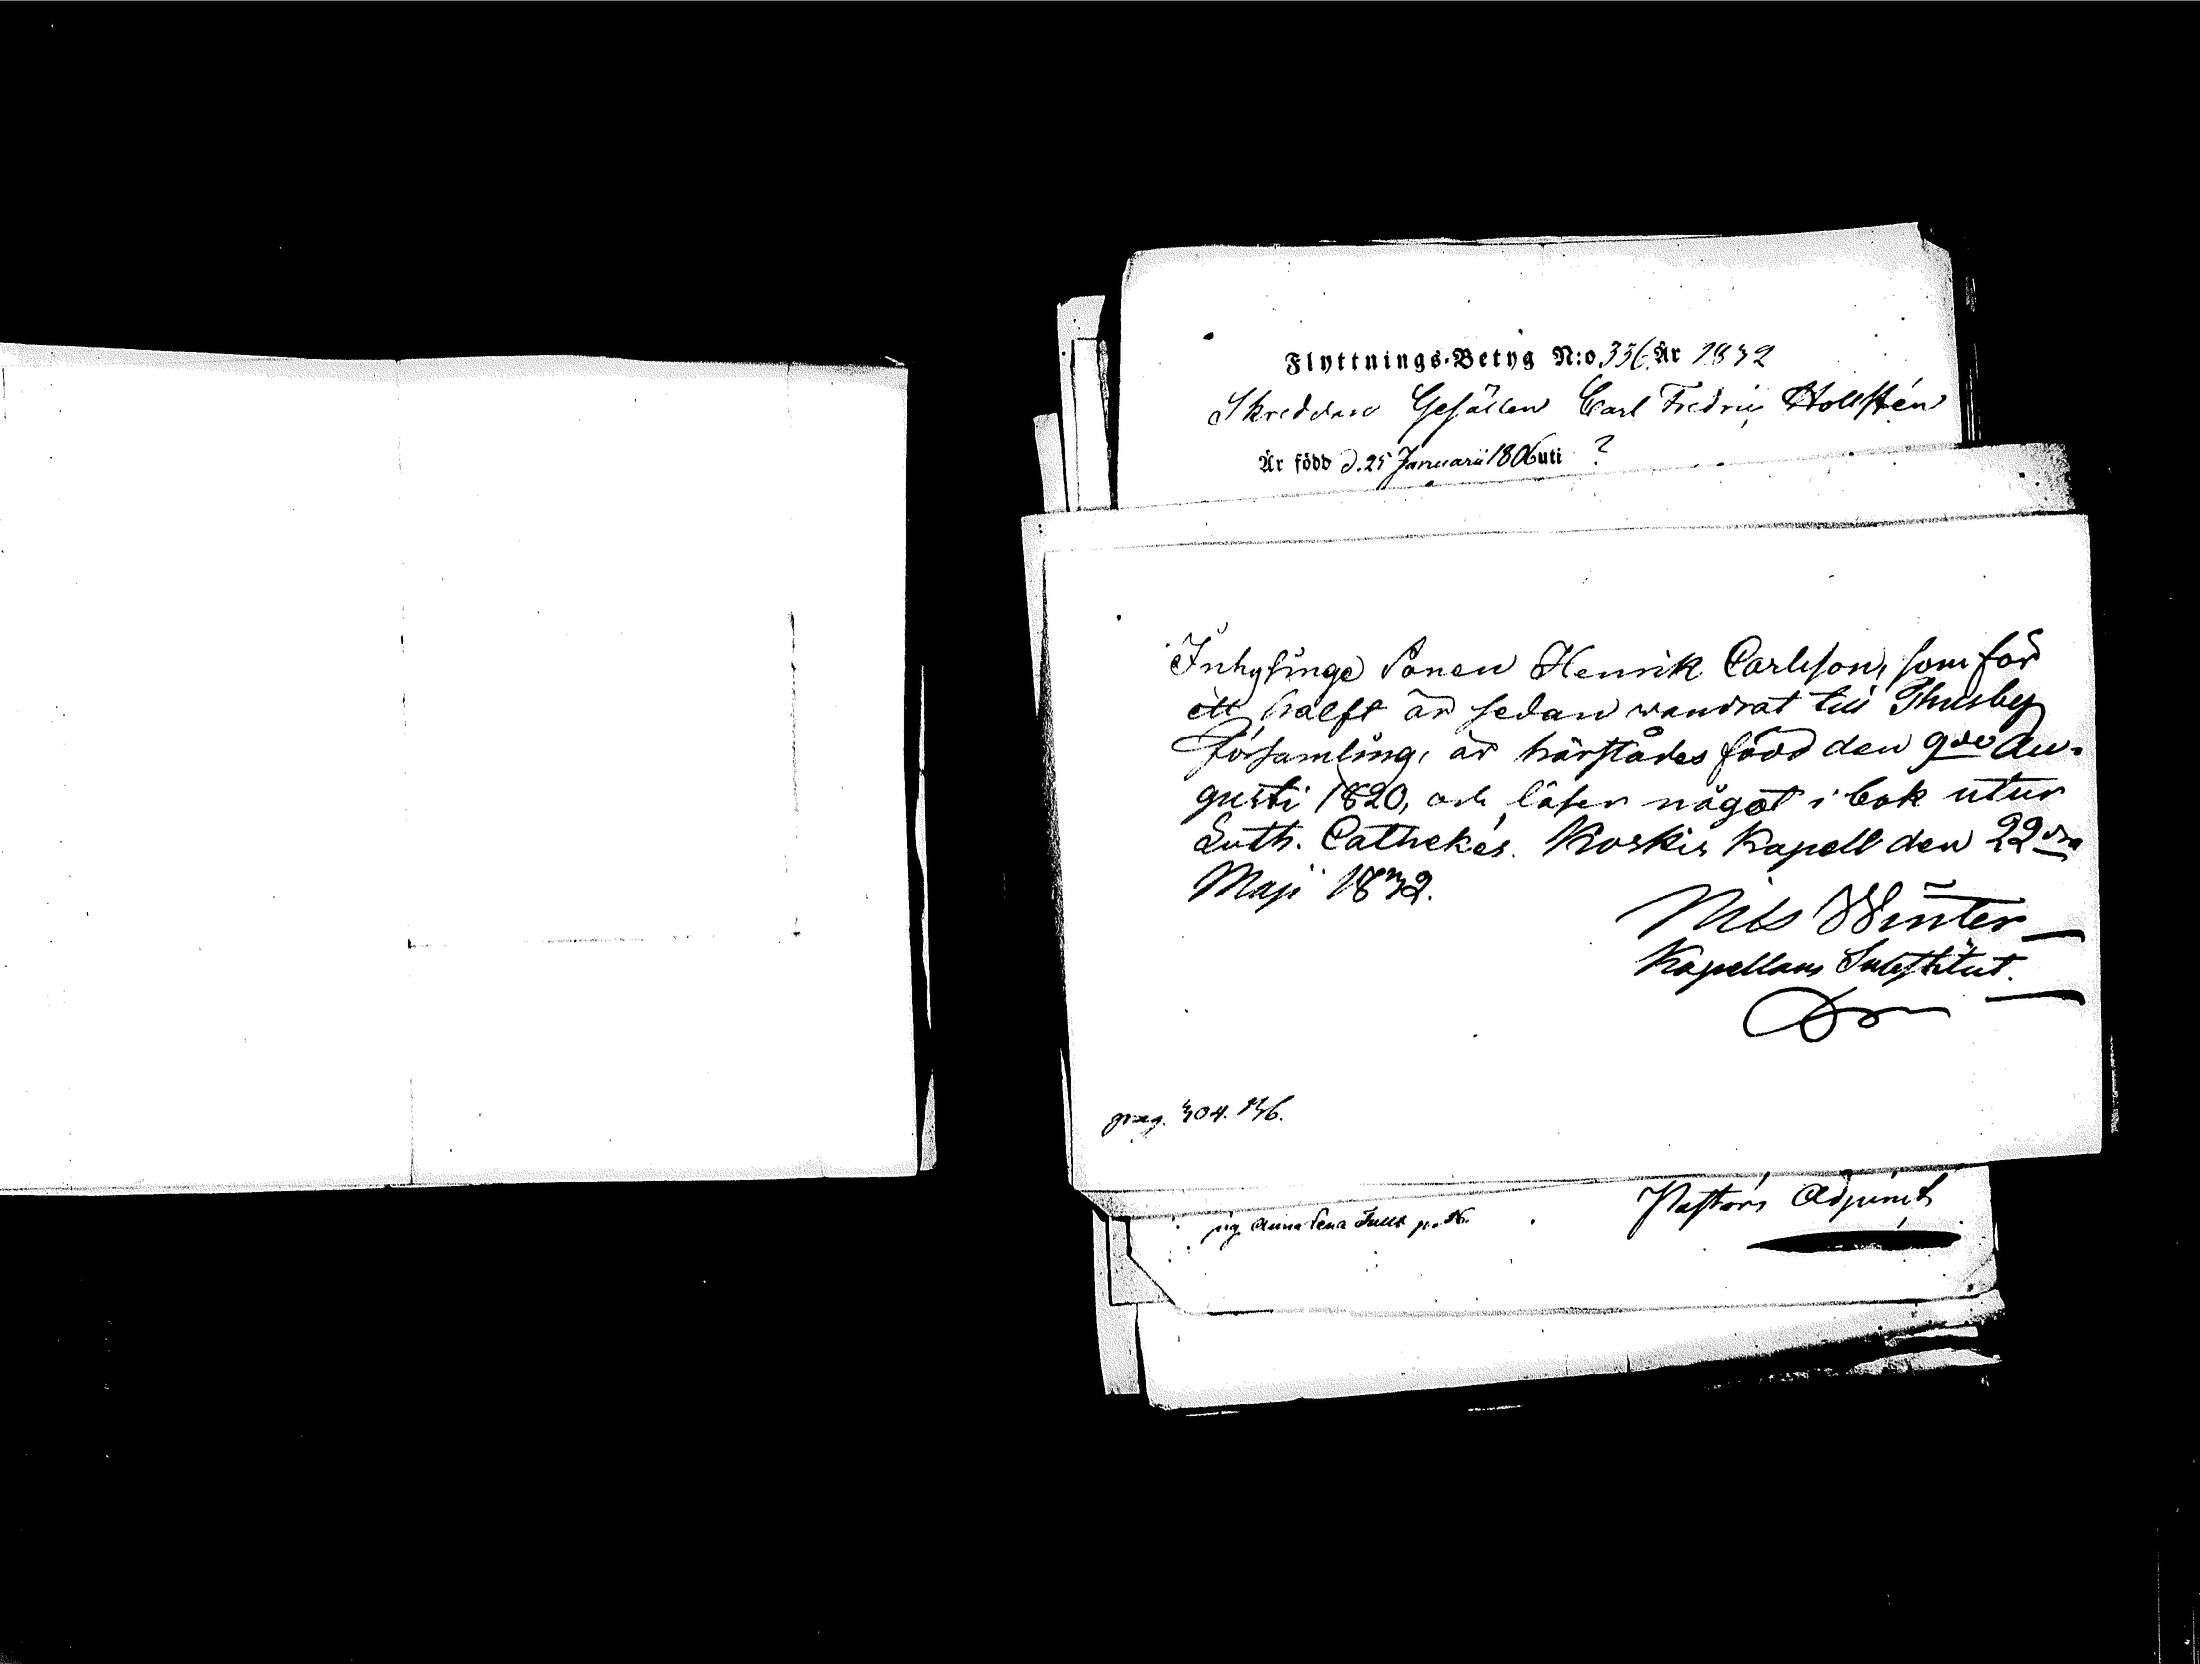 Flyttnings-Betyg N:o 336 År 1832
Skreddare Gesällen Carl Fredric Hollstén
Är född d. 25 Januarii 1806 uti ?
Inhysinge Sonen Henrik Carlsson, som för
ett halft år sedan wandrat till Thusby
församling, är härstädes född den 9de Au-
gusti 1820, och läser något i bok utur
Luth. Cathekes. Koskis Kapell den 22dra
Maji 1832.
Nils Winter
Kapellans Substitut.
pag. 304. 136.
Pastors Adjunct
pig. Anna Lena